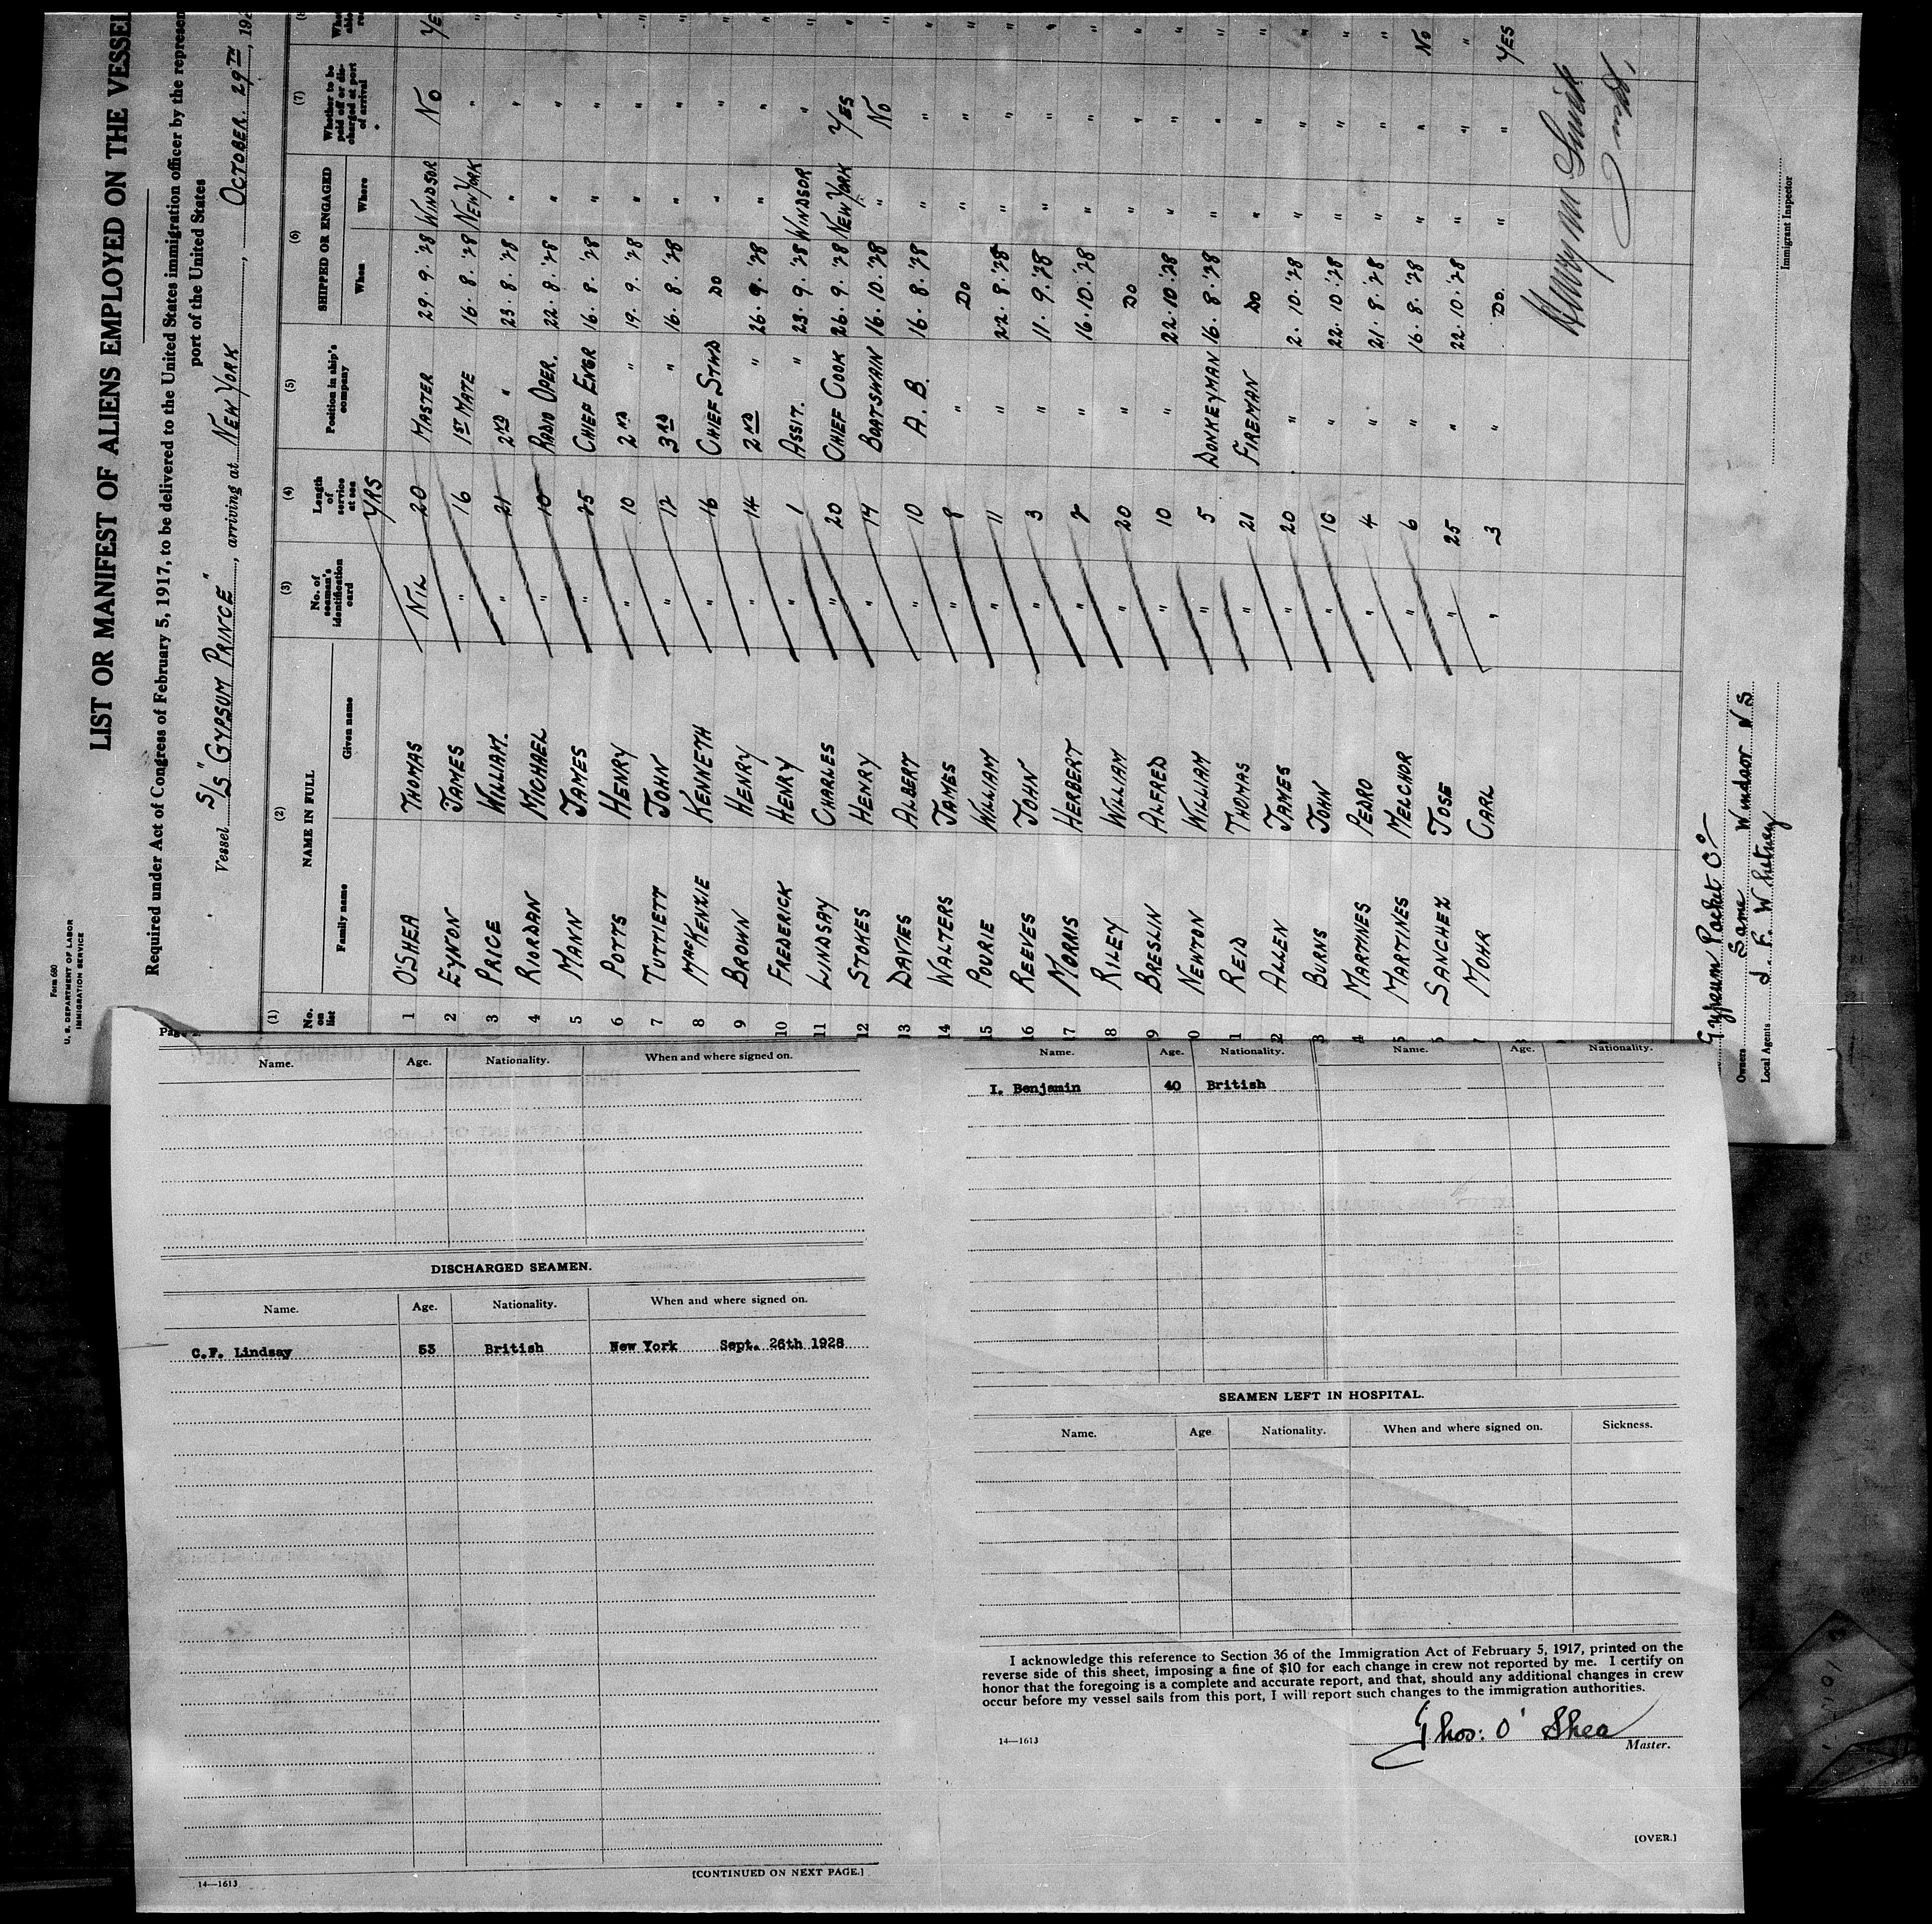 Form 680
U. S. DEPARTMENT OF LABOR
IMMIGRATION SERVICE
LIST OR MANIFEST OF ALIENS EMPLOYED ON THE VESSEL
Required under Act of Congress of February 5, 1917, to be delivered to the United States immigration officer by the represen
port of the United States
Vessel S/S "GYPSUM PRINCE", arriving at NEW YORK, OCTOBER. 29TH, 192
(1) (2) (3) (4) (5) (6) (7)
No. on list NAME IN FULL No. of seaman's identification card Length of service at sea Position in ship's company SHIPPED OR ENGAGED Whether to be paid off or discharged at port of arrival
Family name Given name YRS When Where
1 O'SHEA THOMAS NIL 20 MASTER 29. 9. '28 WINDSOR NO YES
2 EYNON JAMES " 16 1ST MATE 16. 8. '28 NEW YORK " "
3 PRICE WILLIAM. " 21 2ND " 23. 8. '28 " " "
4 RIORDAN MICHAEL " 10 RADIO OPER. 22. 8. '28 " " "
5 MANN JAMES " 25 CHIEF ENGR 16. 8. '28 " " "
6 POTTS HENRY " 10 2ND " 19. 9. '28 " " "
7 TUTTIETT JOHN " 12 3RD " 16. 8. '28 " " "
8 MACKENZIE KENNETH " 16 CHIEF STWD DO " " "
9 BROWN HENRY " 14 2ND " 26. 9. '28 " " "
10 FREDERICK HENRY " 1 ASSIT. " 23. 9. '28 WINDSOR " "
11 LINDSAY CHARLES " 20 CHIEF COOK 26. 9. '28 NEW YORK YES "
12 STOKES HENRY " 14 BOATSWAIN 16. 10. '28 " NO "
13 DAVIES ALBERT " 10 A. B. 16. 8. '28 " " "
14 WALTERS JAMES " 8 " DO " " "
15 POURIE WILLIAM " 11 " 22. 8. '28 " " "
16 REEVES JOHN " 3 " 11. 9. '28 " " "
17 MORRIS HERBERT " 2 " 16. 10. '28 " " "
18 RILEY WILLIAM " 20 " DO " " "
9 BRESLIN ALFRED " 10 " 22. 10. '28 " " "
0 NEWTON WILLIAM " 5 DONKEYMAN 16. 8. '28 " " "
1 REID THOMAS " 21 FIREMAN DO " " "
2 ALLEN JAMES " 20 " 2. 10. '28 " " "
3 BURNS JOHN " 10 " 22. 10. '28 " " "
4 MARTINES PEDRO " 4 " 21. 8. '28 " " "
5 MARTINES MELCHOR " 6 " 16. 8. '28 " " NO
6 SANCHEZ JOSE " 25 " 22. 10. '28 " " "
7 MOHR CARL " 3 " DO. " " YES
Gypsum Packet Co
Owners Same Windsor N S
Local Agents J. F. Whitney
Immigrant Inspector
Name. Age. Nationality. When and where signed on.
DISCHARGED SEAMEN.
Name. Age. Nationality. When and where signed on.
C.F. Lindsay 53 British New York Sept. 26th 1928
14—1613
[CONTINUED ON NEXT PAGE.]
Name. Age. Nationality. Name. Age. Nationality.
I. Benjamin 40 British
SEAMEN LEFT IN HOSPITAL.
Name. Age Nationality. When and where signed on. Sickness.
I acknowledge this reference to Section 36 of the Immigration Act of February 5, 1917, printed on the
reverse side of this sheet, imposing a fine of $10 for each change in crew not reported by me. I certify on
honor that the foregoing is a complete and accurate report, and that, should any additional changes in crew
occur before my vessel sails from this port, I will report such changes to the immigration authorities.
Thos: O'Shea
Master.
14—1613
[OVER.]